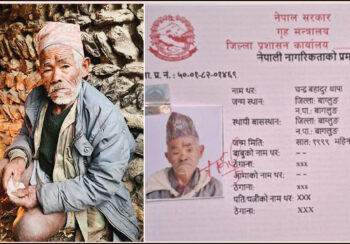 नेपाल सरकार
गृह मन्त्रालय
जिल्ला प्रशासन कार्यालय
नेपाली नागरिकताको प्रमा
ना. प्र. नं.
नाम थर: चन्द्र बहादुर थापा
जन्म स्थान: जिल्ला: बाग्लुङ
न.पा.: बागलुङ
स्थायी बासस्थान: जिल्ला: बाग्लुङ
न.पा.: बागलुङ
जन्म मिति: साल: १९९९ महिन
बाबुको नाम थर:
ठेगाना: xxx
आमाको नाम थर:
ठेगाना: xxx
पति/पत्नीको नाम थर: xxx
ठेगाना: xxx